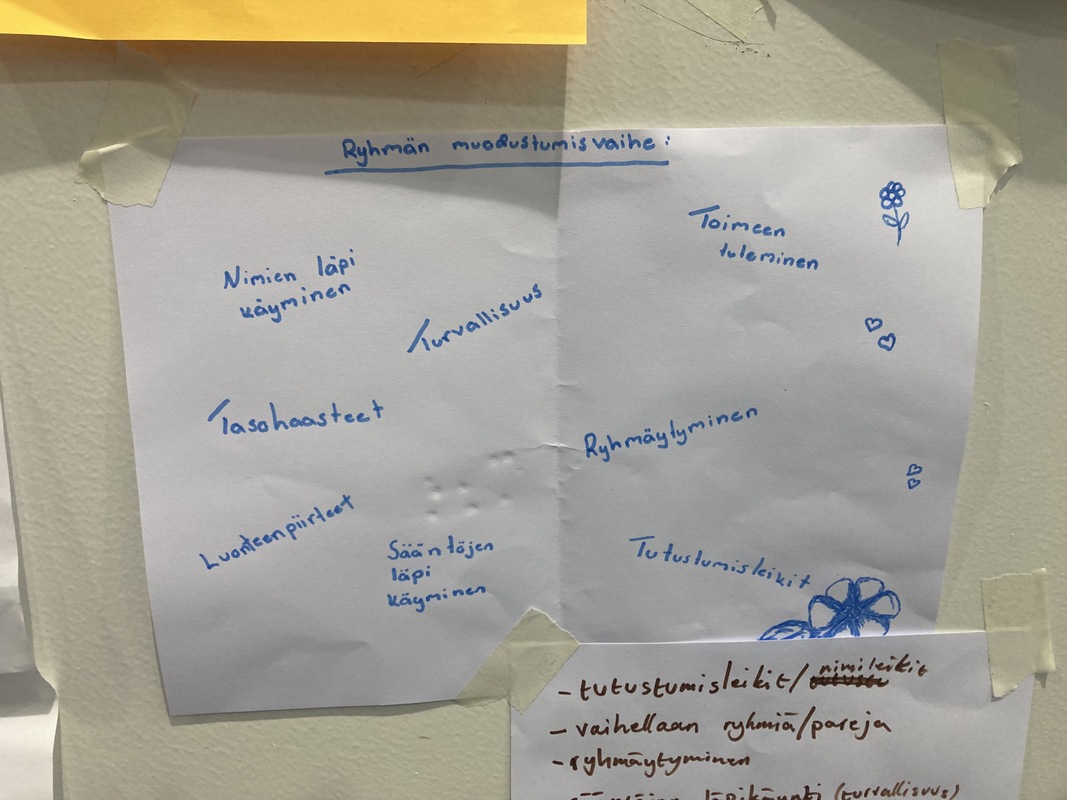 Ryhmän muodustumisvaihe:
Toimeen
tuleminen
Nimien läpi
käyminen
Turvallisuus
Tasohaasteet
Ryhmäytyminen
Luonteenpiirteet
Sääntöjen
läpi
käyminen
Tutustumisleikit
- tutustumisleikit/nimileikit
- vaihellaan ryhmiä/pareja
- ryhmäytyminen
läpikäynti (turvallisuus)